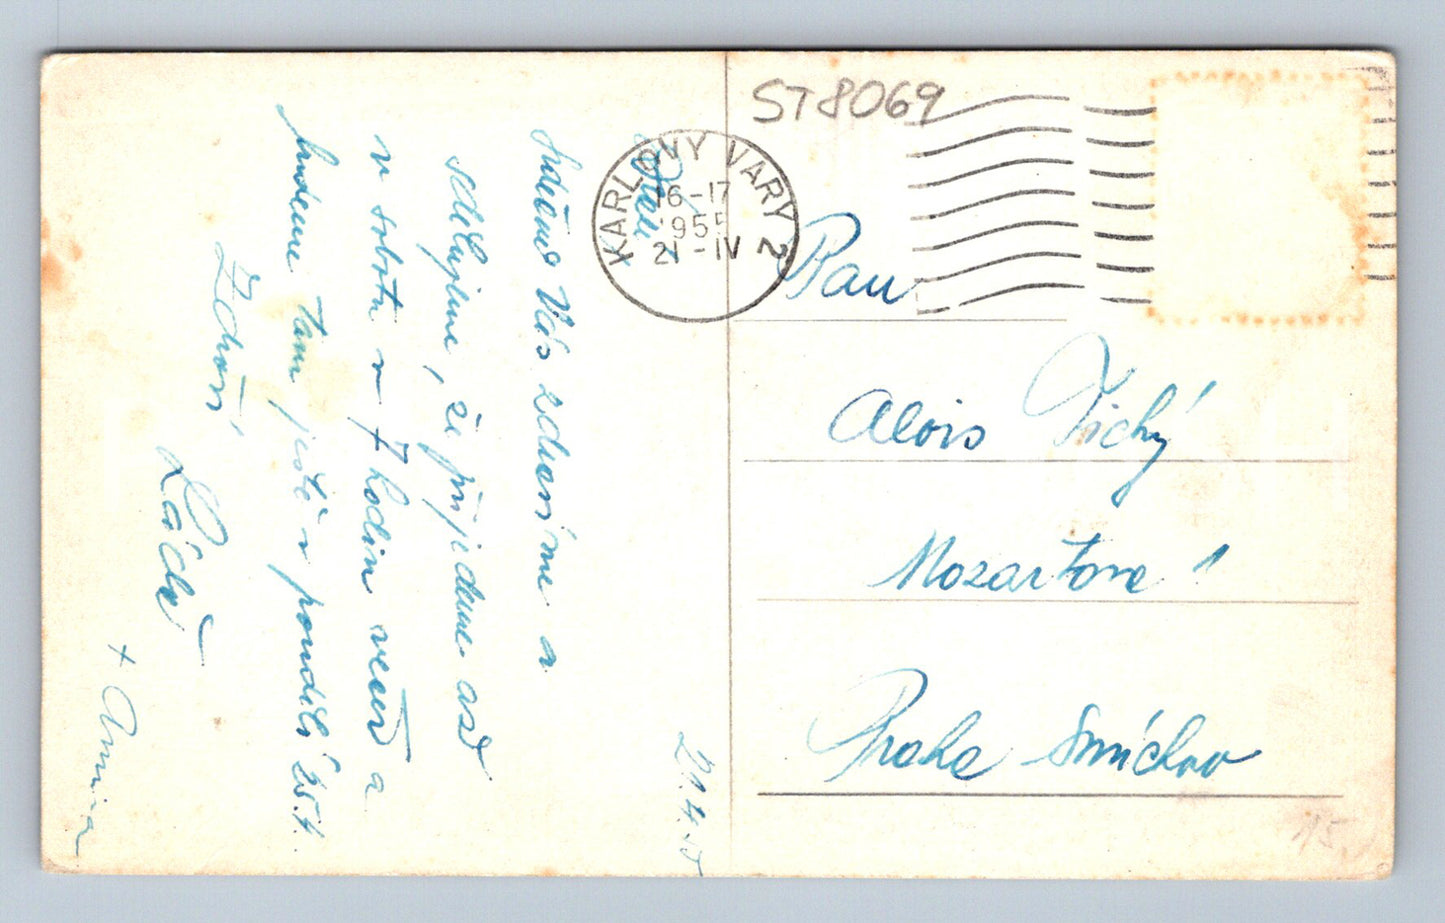 ST8069
KARLOVY VARY 2
16-17
1955
21-IV
Pan
Alois Tichý
Mozartova 1
Praha Smíchov
21.4.55
Srdečně Vás zdravíme a
sdělujeme, že přijedeme asi
v sobotu v 7 hodin večer a
budeme tam ještě v pondělí 25.4.
Zdraví
+ Anna
15.